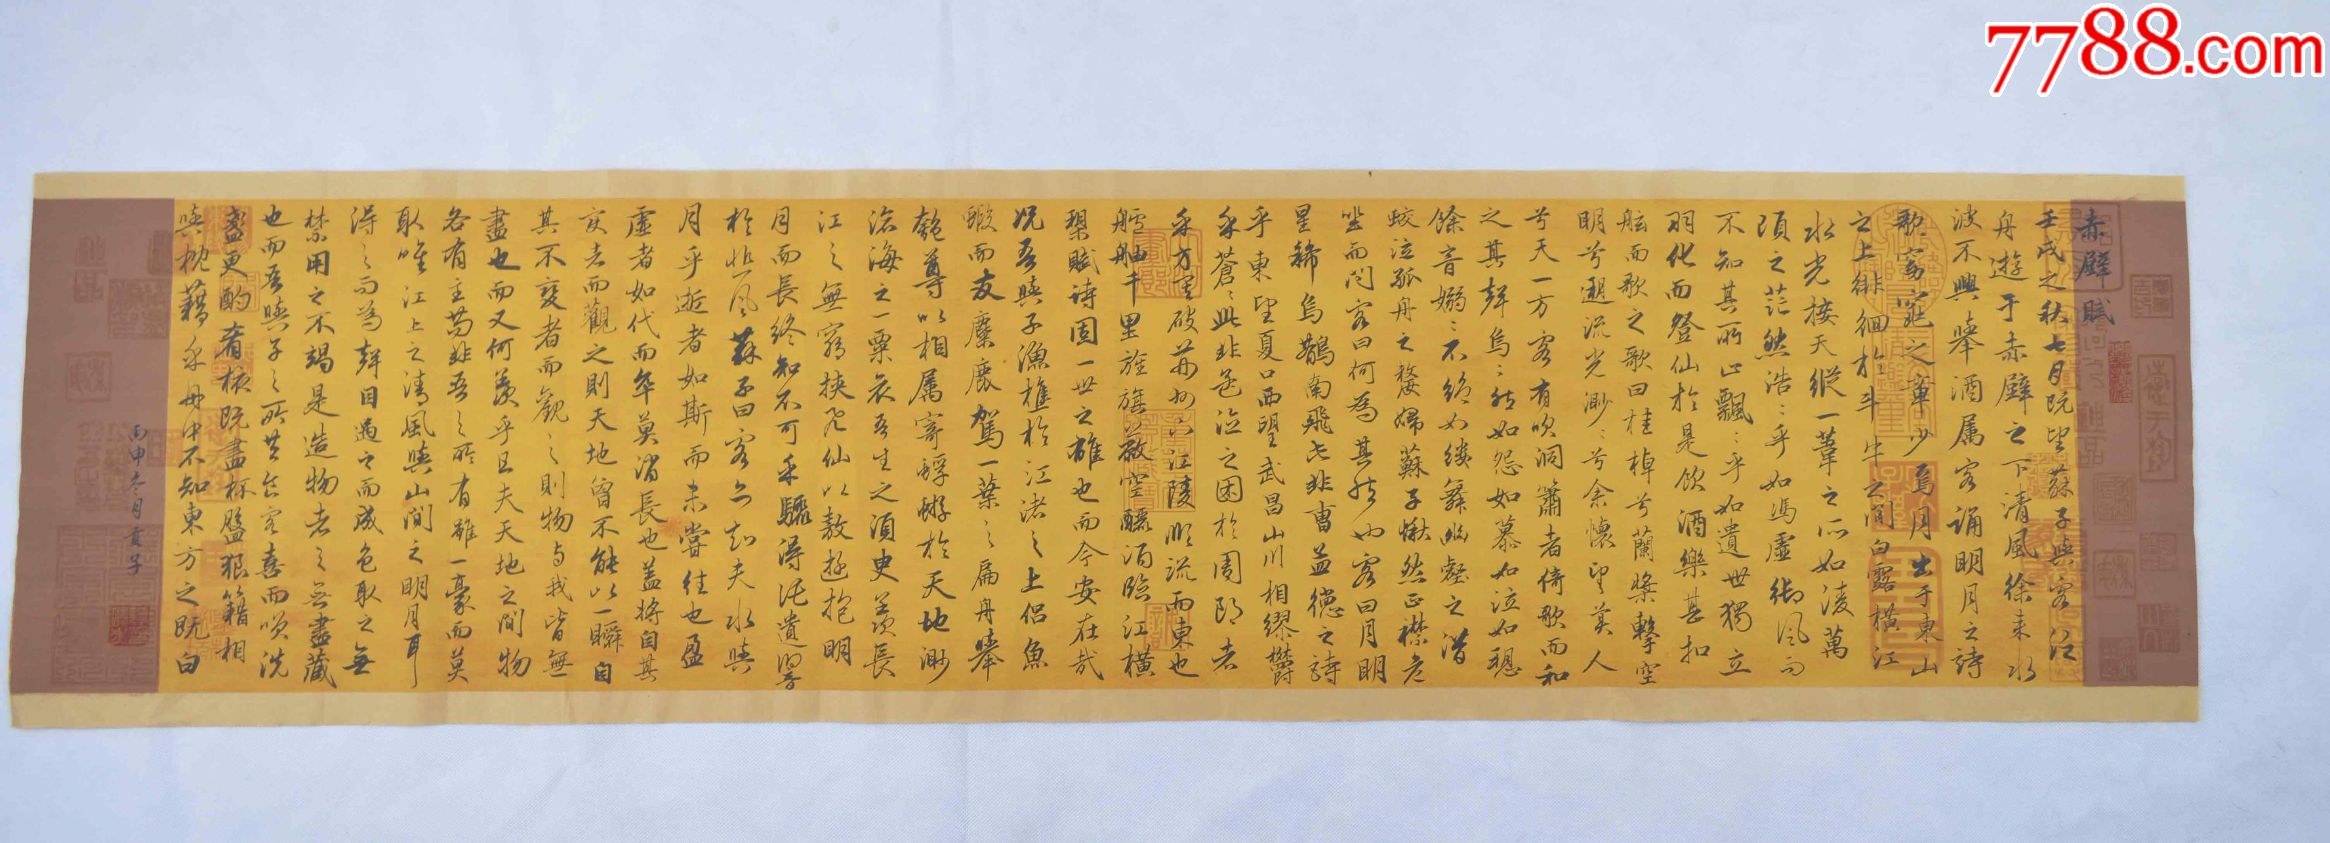 7788.com
赤壁賦
壬戌之秋七月既望蘇子與客泛
舟遊于赤壁之下清風徐来水
波不興舉酒属客誦明月之詩
歌窈窕之章少焉月出于東山
之上徘徊於斗牛之間白露橫江
水光接天縱一葦之所如凌萬
頃之茫然浩〻乎如馮虛御風而
不知其所止飄〻乎如遺世獨立
羽化而登仙於是飲酒樂甚扣
舷而歌之歌曰桂棹兮蘭槳擊空
明兮遡流光渺〻兮余懷望美人
兮天一方客有吹洞簫者倚歌而和
之其聲烏〻然如怨如慕如泣如
餘音嫋〻不絕如縷舞幽壑之潛
蛟泣孤舟之嫠婦蘇子愀然正襟危
坐而問客曰何為其然也客曰月明
星稀烏鵲南飛此非曹孟德之詩
乎東望夏口西望武昌山川相繆鬱
乎蒼〻此非孟德之困於周郎者
乎方其破荊州下江陵順流而東也
舳艫千里旌旗蔽空釃酒臨江橫
槊賦詩固一世之雄也而今安在哉
況吾與子漁樵於江渚之上侶魚
蝦而友麋鹿駕一葉之扁舟舉
匏尊以相属寄蜉蝣於天地渺
滄海之一粟哀吾生之須臾羨長
江之無窮挾飛仙以敖遊抱明
月而長終知不可乎驟得託遺響
於悲風蘇子曰客亦知夫水與
月乎逝者如斯而未嘗往也盈
虛者如代而卒莫消長也蓋將自其
变者而觀之則天地曾不能以一瞬自
其不變者而觀之則物与我皆無
盡也而又何羨乎且夫天地之間物
各有主苟非吾之所有雖一豪而莫
取唯江上之清風與山間之明月耳
得之而為聲目遇之而成色取之無
禁用之不竭是造物者之無盡藏
也而吾與子之所共食客喜而咲洗
盞更酌肴核既盡杯盤狼籍相
與枕藉乎舟中不知東方之既白
丙申冬月